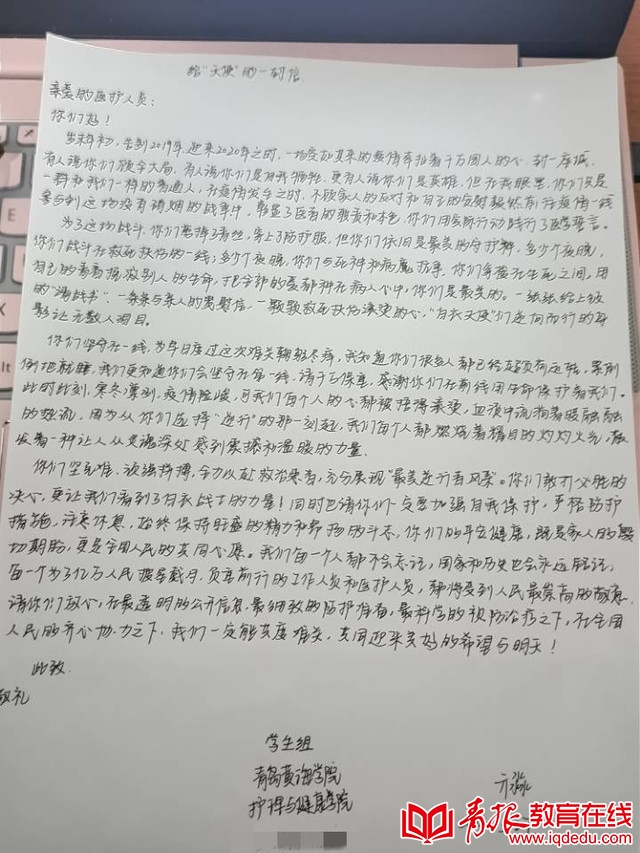 给"天使"的一封信
亲爱的医护人员:
你们好!
岁末年初,告别2019年,迎来2020年之时,一场突如其来的疫情牵扯着千万国人的心,封一座城,
有人说你们顾全大局,有人说你们是自我牺牲,更有人说你们是英雄,但在我眼里,你们只是
一群和我们一样的普通人,在疫情发生之时,不顾家人的反对和自己的安危毅然前往疫情一线
参与到这场没有硝烟的战争中,彰显了医者的
为了这场战斗,你们剪掉了青丝,穿上了防护服,但你们依旧是最美的守护神,多少个夜晚,
你们战斗在救死扶伤的一线;多少个夜晚,你们与死神和病魔抗争。你们穿梭在生死之间,用
自己的青春拯救别人的生命,把全部的爱都种在病人心中,你们是最美的。一张张给上级
的"请战书"、一条条与亲人的离别信、一颗颗救死扶伤滚烫的心,"白衣天使"们逆向而行的身
影让无数人泪目。
你们坚守在一线,为早日度过这次难关朝乾夕惕,我知道你们很多人都已经超负荷运转,累到
倒地就睡,我们更知道你们会坚守在第一线,请千万保重,感谢你们在前线用生命保护着我们。
此时此刻,寒冬凛冽,疫情险峻,可我们每个人的心都被捂得滚烫,血液中流淌着暖融融
的热流,因为从你们选择"逆行"的那一刻起,我们每个人都燃烧着耀目的灼灼火光,散
发着一种让人从灵魂深处感到震撼和温暖的力量。
你们坚克难、顽强拼搏,全力以赴救治患者,充分展现"最美逆行者风采"。你们敢打必胜的
决心,更让我们看到了白衣战士的力量!同时也请你们一定要加强自我保护,严格防护
措施,注意休息,始终保持旺盛的精力和昂扬的斗志,你们的平安健康,既是家人的殷
切期盼,更是全国人民的共同心愿。我们每一个人都不会忘记,国家和历史也会永远铭记,
每一个为了亿万人民披星戴月、负重前行的工作人员和医护人员,都将受到人民最崇高的敬意。
请你们放心,在最透明的公开信息、最细致的防护指南、最科学的预防治疗之下,在全国
人民的齐心协力之下,我们一定能共度难关,共同迎来美好的希望与明天!
此致
敬礼
学生组
青岛黄海学院
护理与健康学院
青报教育在线
www.iqdedu.com